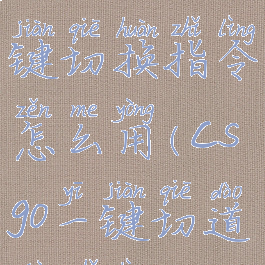 jiàn qiē huàn zhǐ lìng
键切换指令
zěn me yòng
怎么用(CS
yī jiàn qiē dào
90一键切道